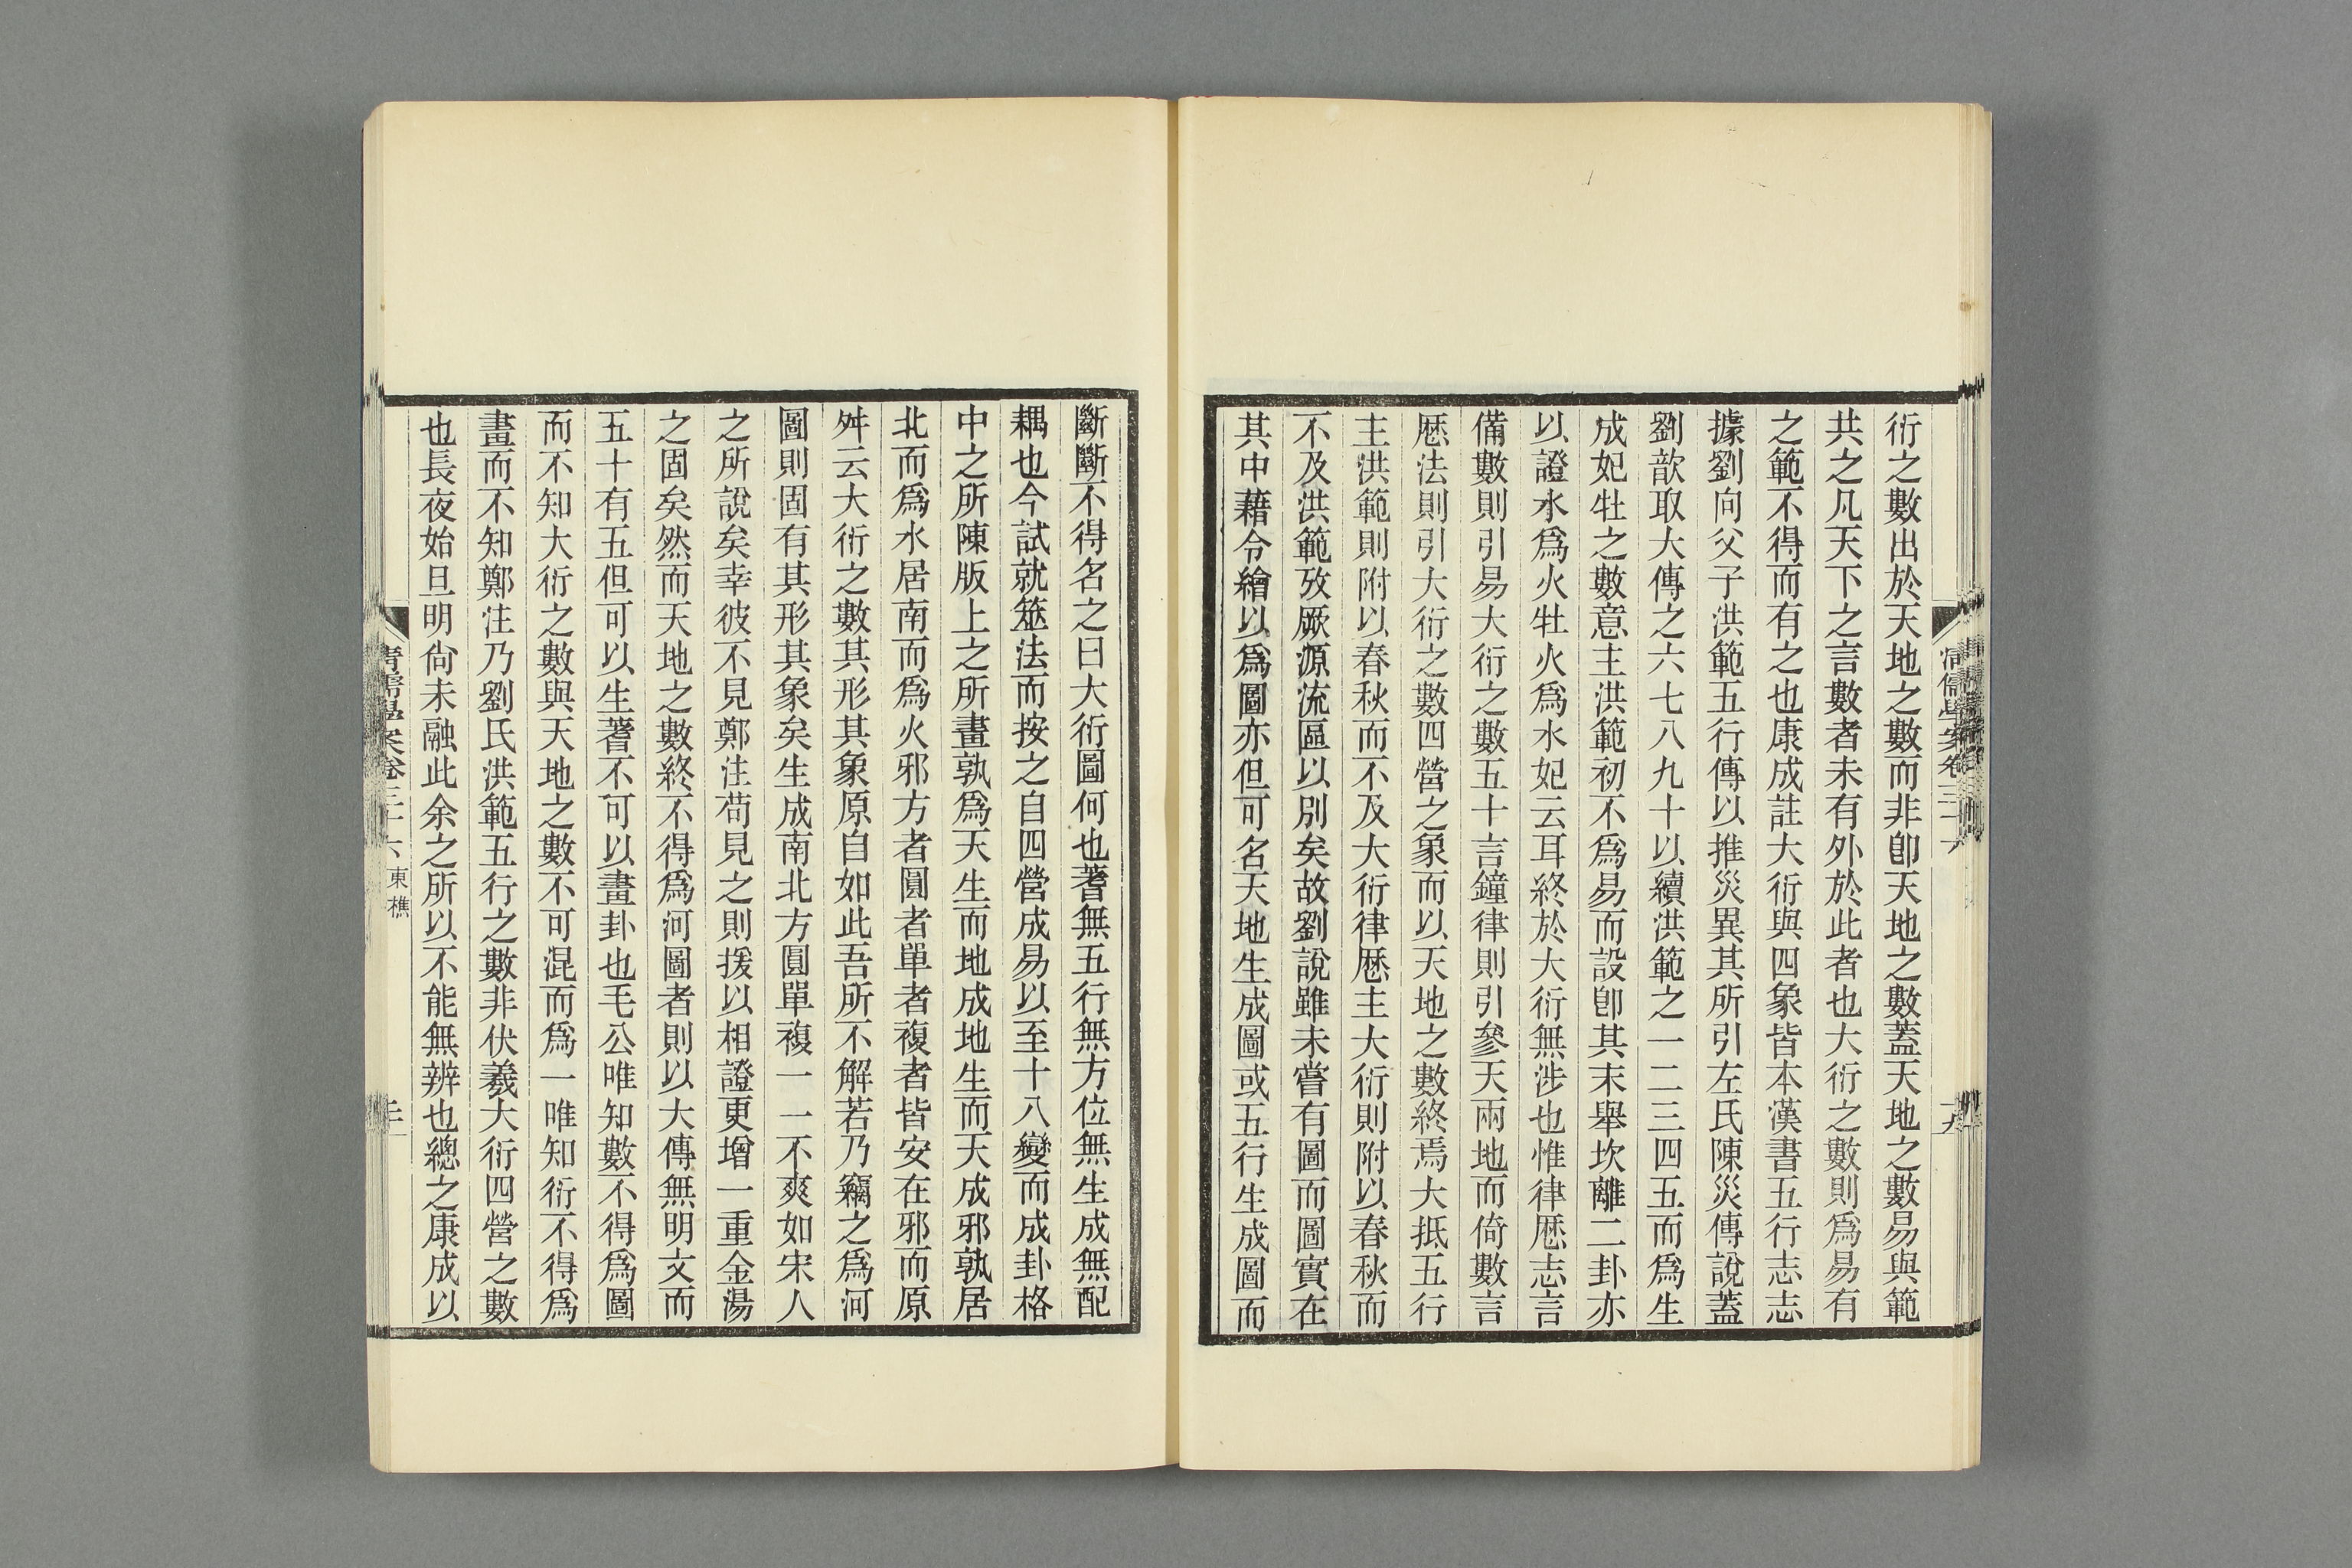 衍之數出於天地之數而非卽天地之數蓋天地之數易與範
共之凡天下之言數者未有外於此者也大衍之數則爲易有
之範不得而有之也康成註大衍與四象皆本漢書五行志志
據劉向父子洪範五行傳以推災異其所引左氏陳災傳說蓋
劉歆取大傳之六七八九十以續洪範之一二三四五而爲生
成妃牡之數意主洪範初不爲易而設卽其末舉坎離二卦亦
以證水爲火牡火爲水妃云耳終於大衍無涉也惟律厯志言
備數則引易大衍之數五十言鐘律則引參天兩地而倚數言
厯法則引大衍之數四營之象而以天地之數終焉大抵五行
主洪範則附以春秋而不及大衍律厯主大衍則附以春秋而
不及洪範攷厥源流區以別矣故劉說雖未嘗有圖而圖實在
其中藉令繪以爲圖亦但可名天地生成圖或五行生成圖而
斷斷不得名之曰大衍圖何也蓍無五行無方位無生成無配
耦也今試就筮法而按之自四營成易以至十八變而成卦格
中之所陳版上之所畫孰爲天生而地成地生而天成邪孰居
北而爲水居南而爲火邪方者圓者單者複者皆安在邪而原
舛云大衍之數其形其象原自如此吾所不解若乃竊之爲河
圖則固有其形其象矣生成南北方圓單複一一不爽如宋人
之所說矣幸彼不見鄭注苟見之則援以相證更增一重金湯
之固矣然而天地之數終不得爲河圖者則以大傳無明文而
五十有五但可以生蓍不可以畫卦也毛公唯知數不得爲圖
而不知大衍之數與天地之數不可混而爲一唯知衍不得爲
畫而不知鄭注乃劉氏洪範五行之數非伏羲大衍四營之數
也長夜始旦明尙未融此余之所以不能無辨也總之康成以
清儒學案卷三十六 東樵